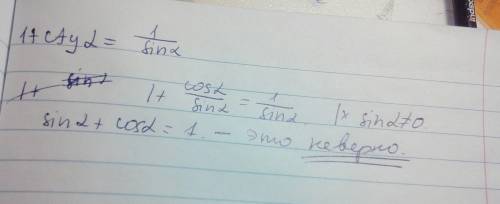 1+ctgα = 1/sinα
1+ cosα/sinα = 1/sinα |× sinα≠0
sinα + cosα = 1. — это неверно.